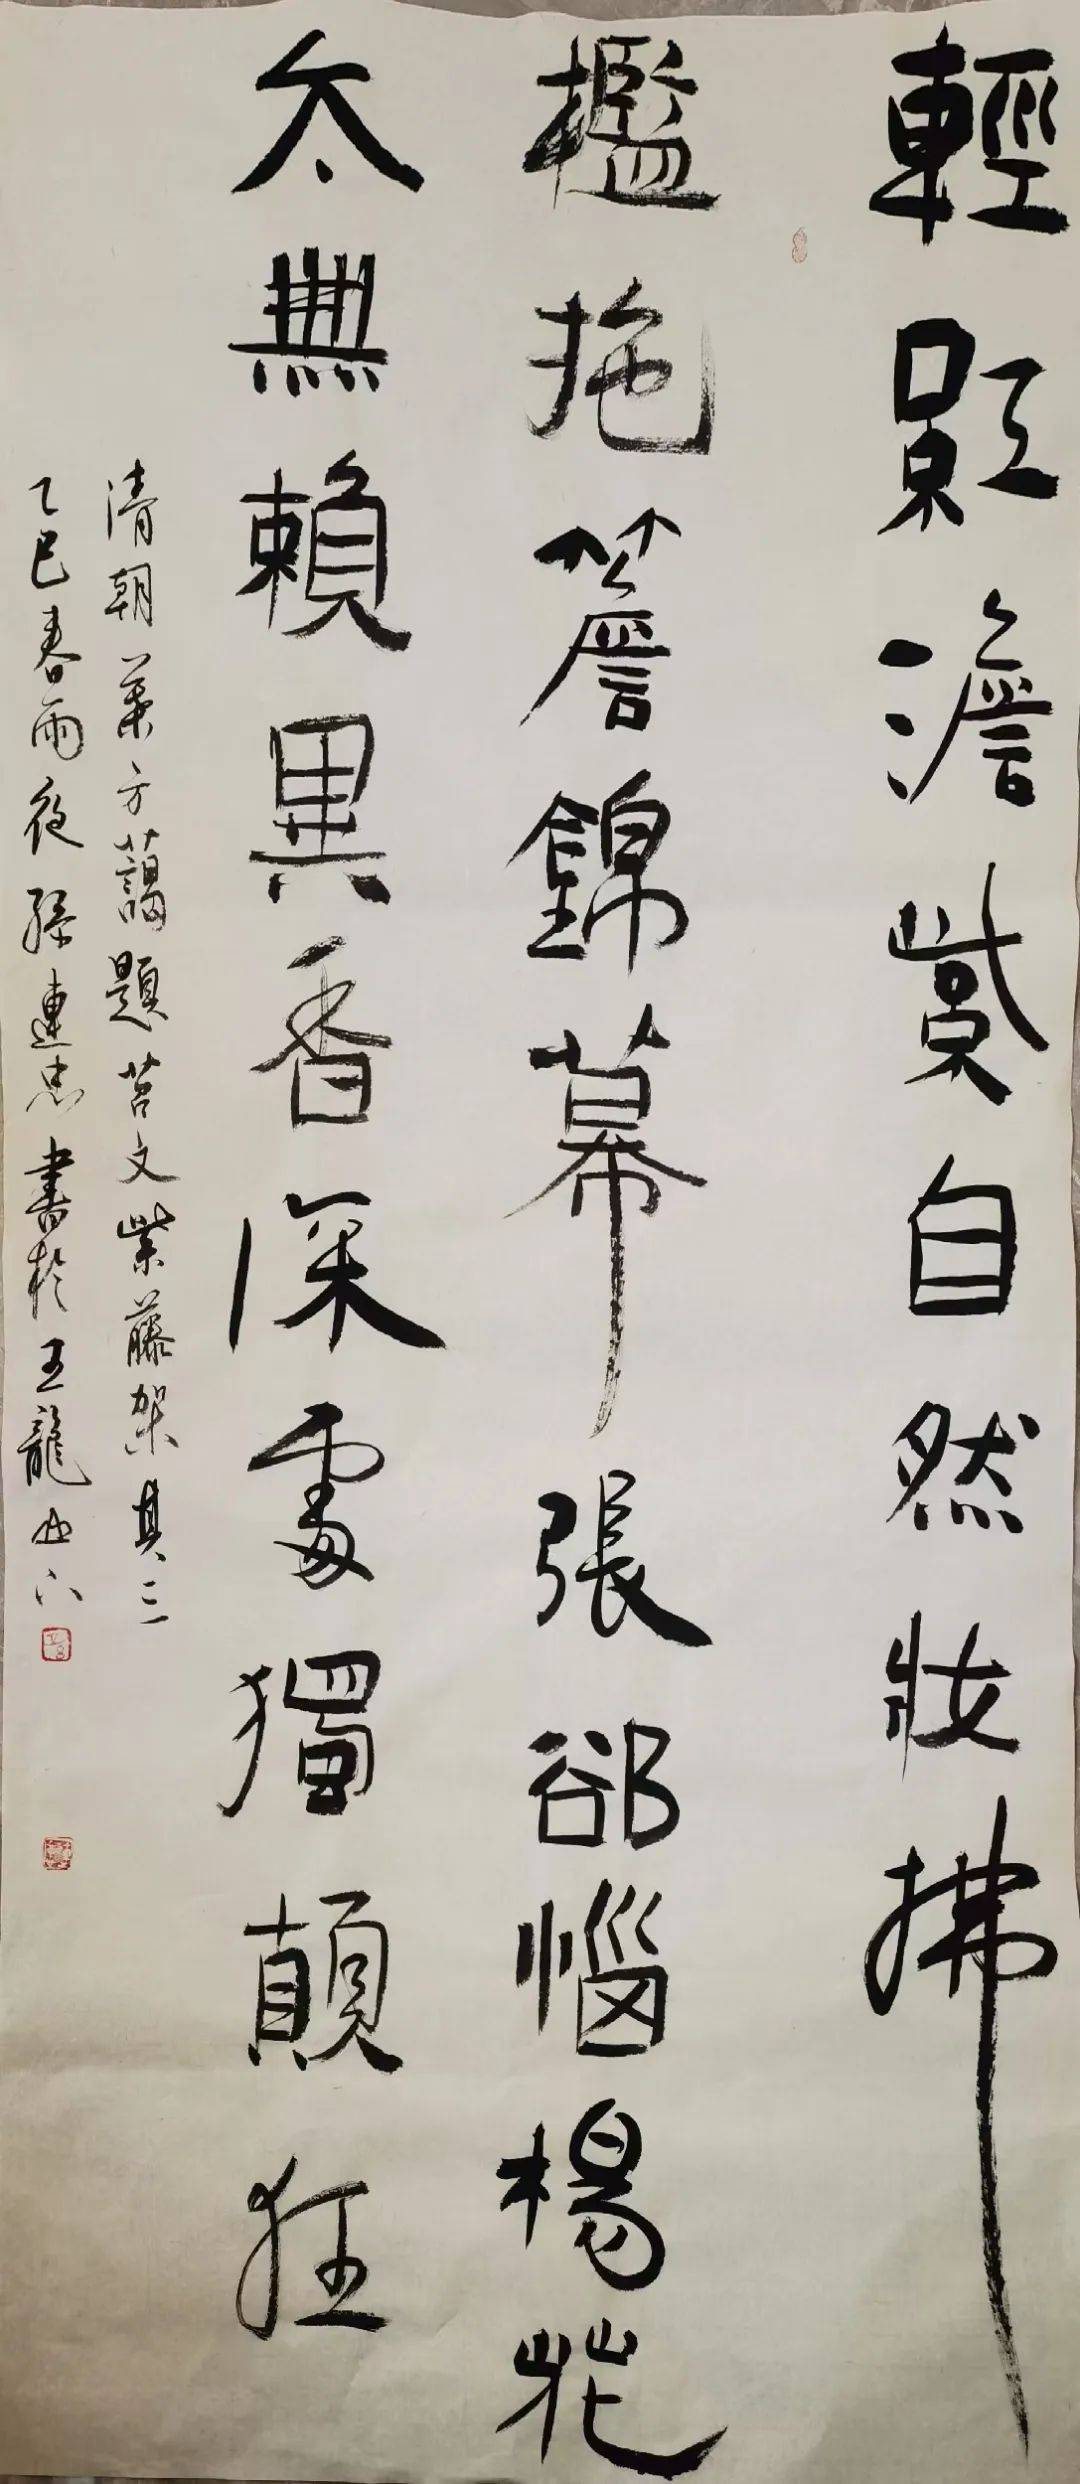 輕紅澹紫自然妝拂
檻拖簷錦幕張郤惱楊花
太無賴異香深處獨顛狂
清朝葉方藹題苔文紫藤架其三
乙巳春雨夜孫連忠書於玉龍山下